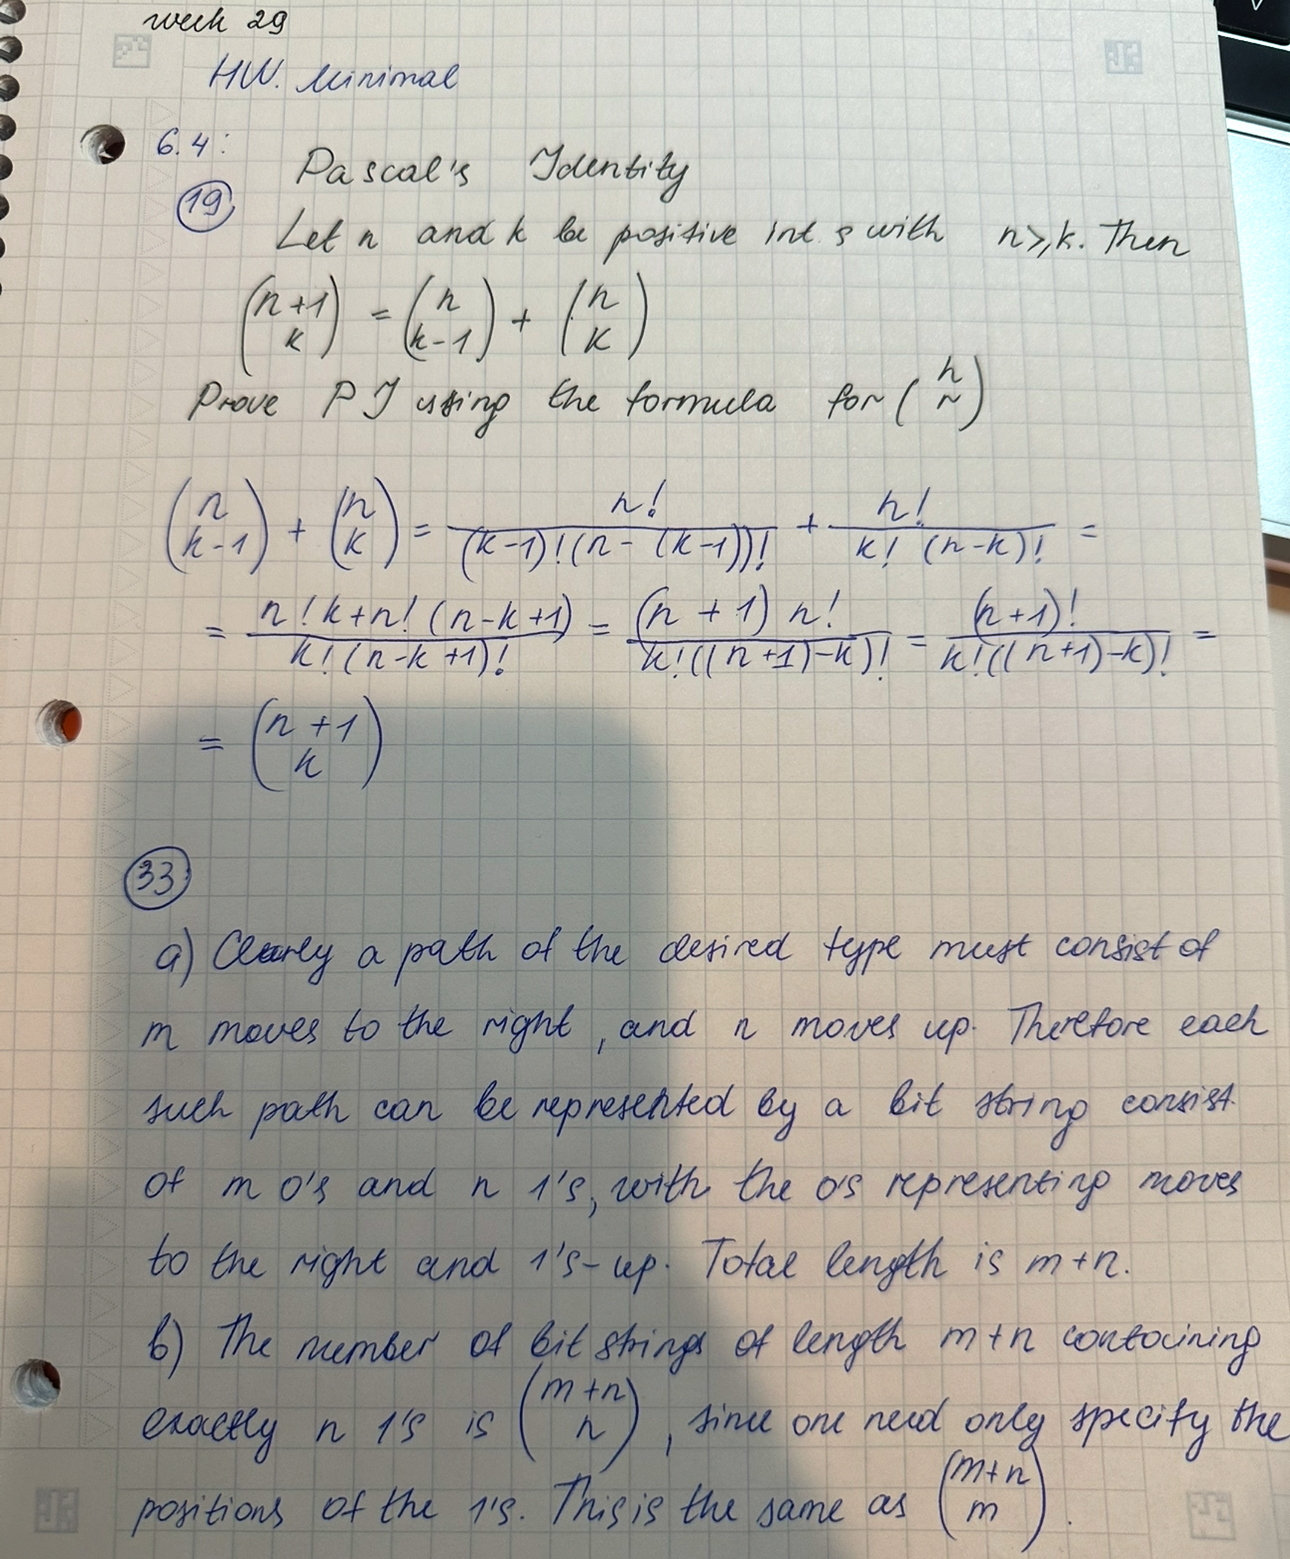 week 29
HW. Minimal
6.4:
Pascal's Identity
19
Let n and k be positive int s with n⩾k. Then
(n+1 k) = (n k-1) + (n k)
Prove PI using the formula for (n r)
(n k-1) + (n k) = n!/((k-1)!(n-(k-1))!) + n!/(k!(n-k)!) =
= (n!k+n!(n-k+1))/(k!(n-k+1)!) = ((n+1)n!)/(k!((n+1)-k)!) = (n+1)!/(k!((n+1)-k)!) =
= (n+1 k)
33
a) Clearly a path of the desired type must consist of
m moves to the right, and n moves up. Therefore each
such path can be represented by a bit string consist.
of m 0's and n 1's, with the 0s representing moves
to the right and 1's-up. Total length is m+n.
b) The number of bit strings of length m+n containing
exactly n 1's is (m+n n), since one need only specify the
positions of the 1's. This is the same as (m+n m).